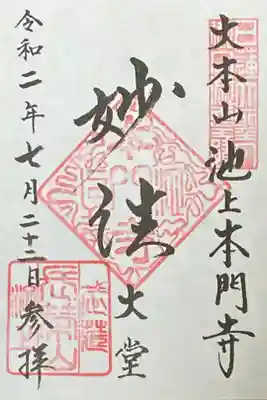 大本山池上本門寺
妙法
大堂
令和二年七月二十二日参拝